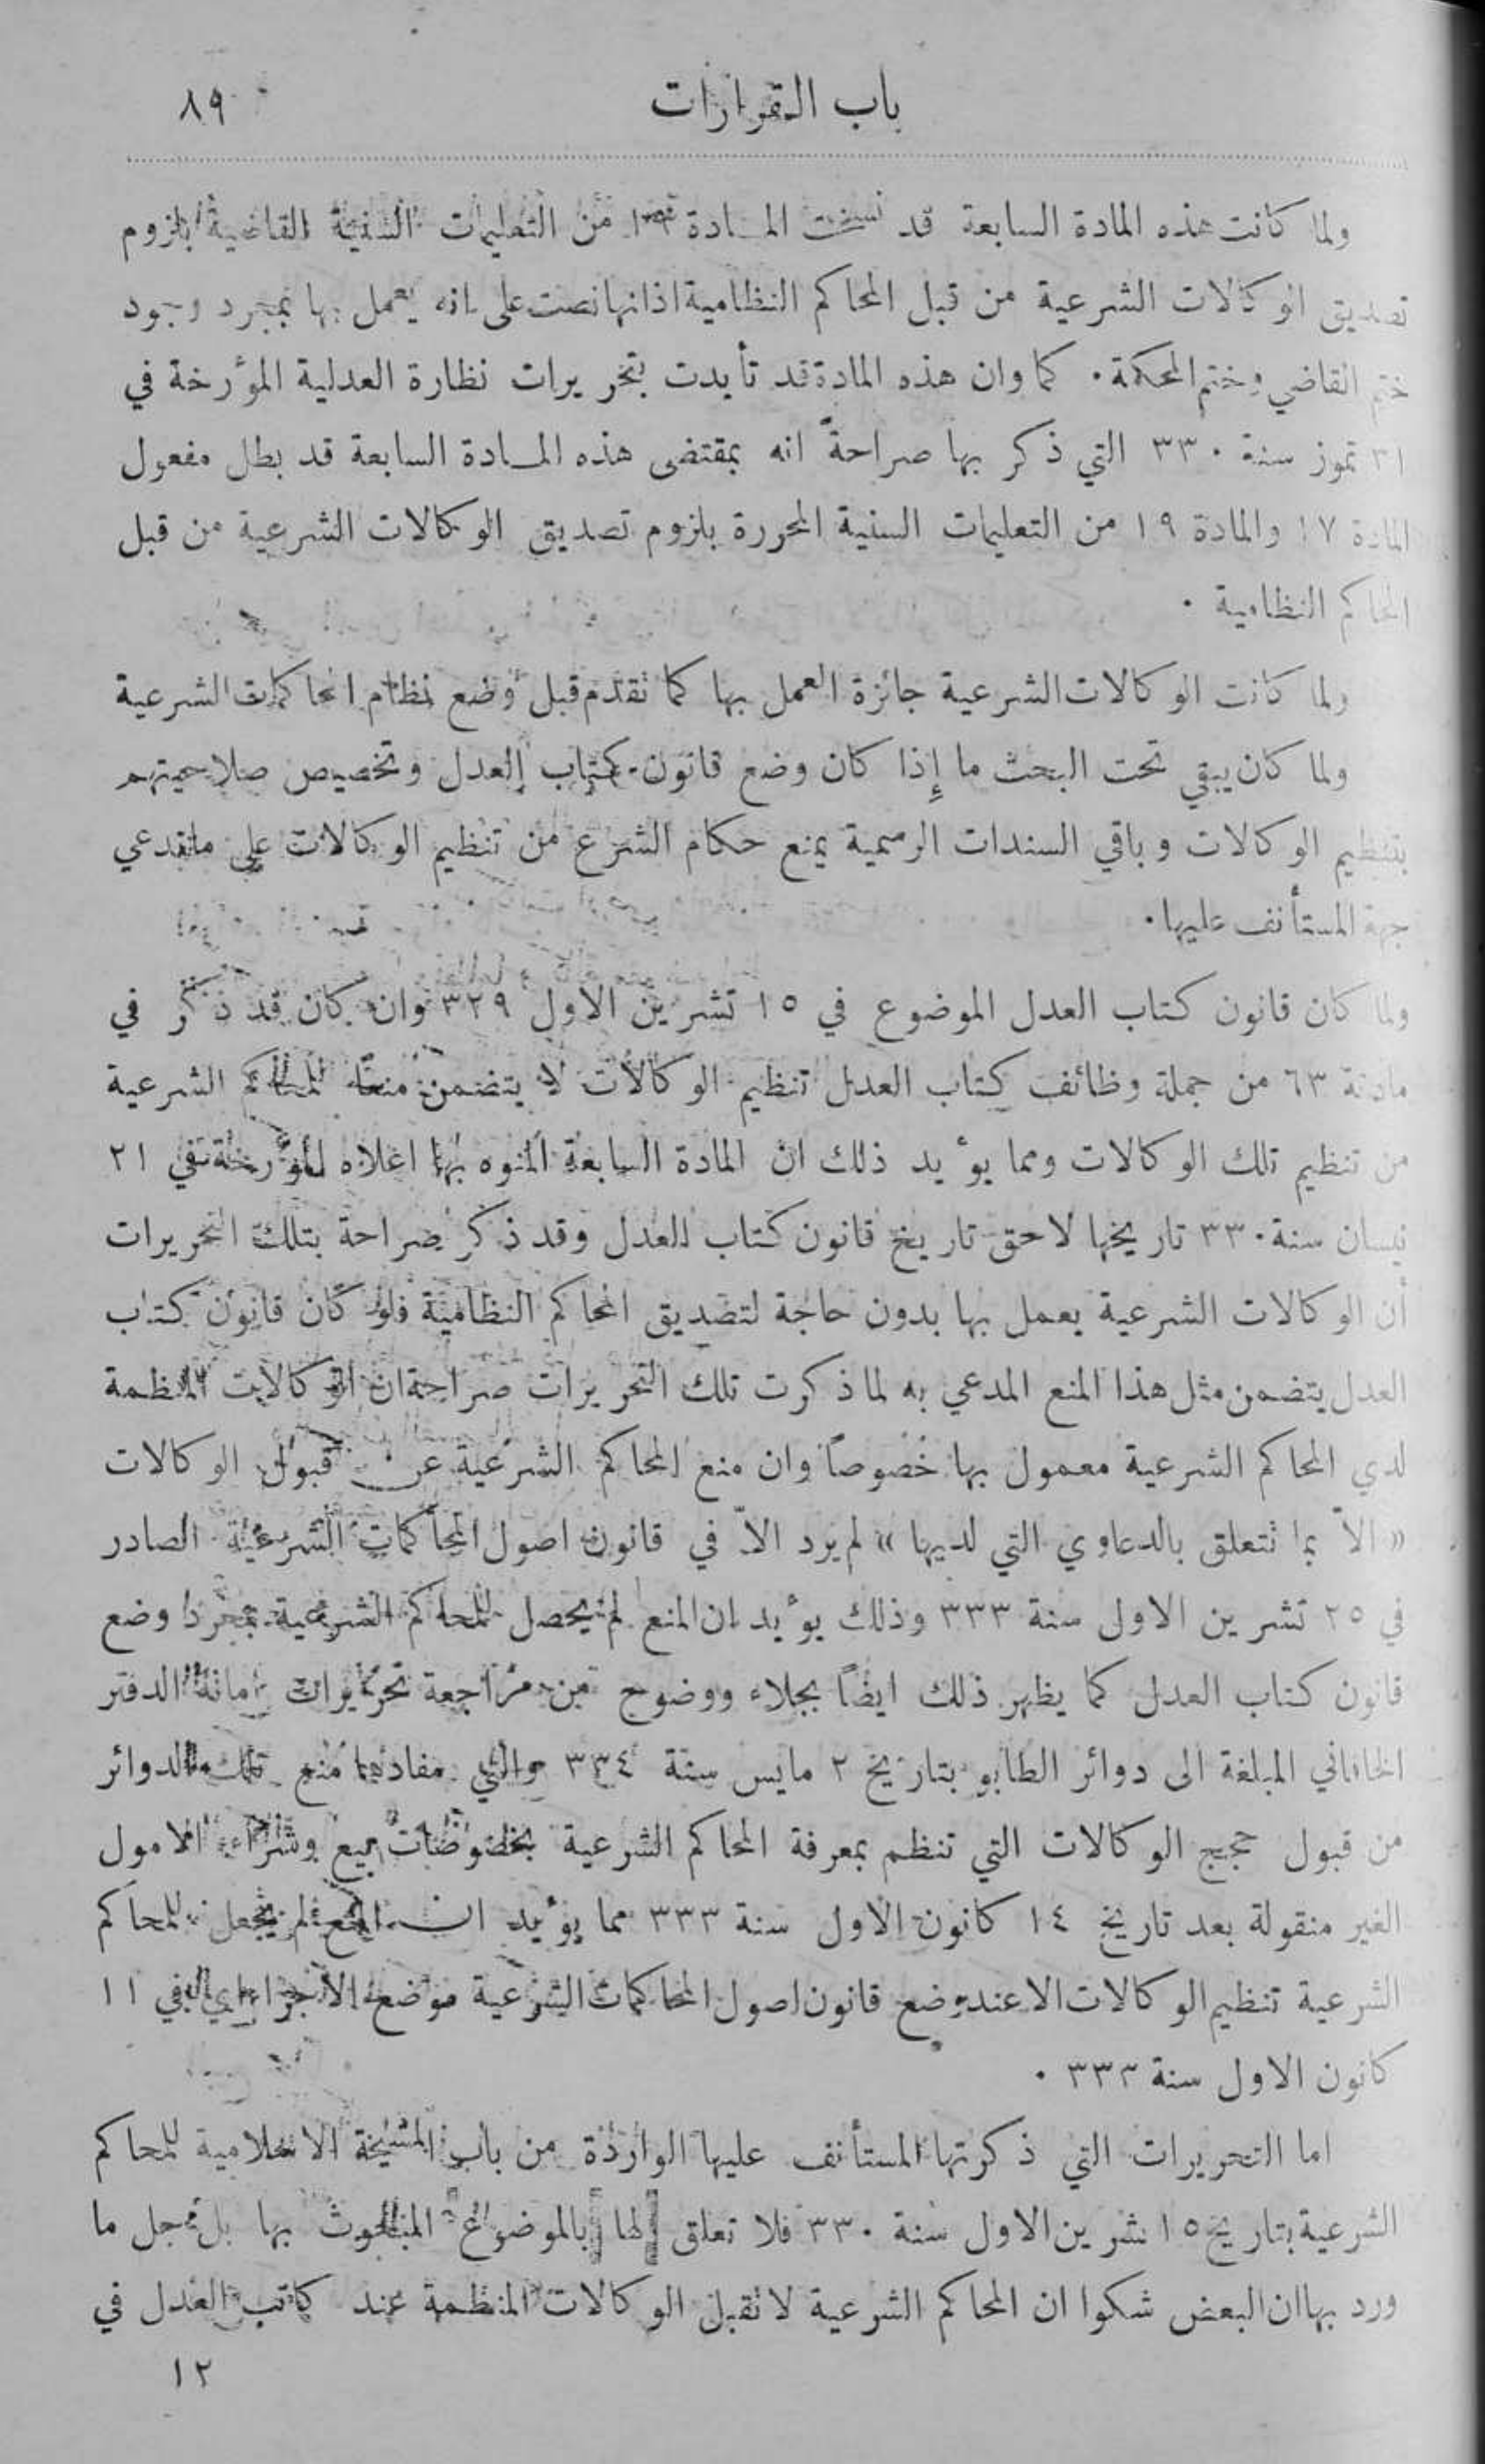 باب القرارات
٨٩
ولما كانت هذه المادة السابعة قد نسخت المادة من التعليمات السنية القاضية بلزوم
تصديق الوكالات الشرعية من قبل المحاكم النظامية اذ انها نصت على انه يعمل بها بمجرد وجود
ختم القاضي وختم المحكمة . كما وان هذه المادة قد تأيدت بتحريرات نظارة العدلية المؤرخة في
٣١ تموز سنة ٣٣٠ التي ذكر بها صراحةً انه بمقتضى هذه المادة السابعة قد بطل مفعول
المادة ١٧ والمادة ١٩ من التعليمات السنية المحررة بلزوم تصديق الوكالات الشرعية من قبل
المحاكم النظامية .
ولما كانت الوكالات الشرعية جائزة العمل بها كما تقدم قبل وضع نظام المحاكمات الشرعية
ولما كان يبقي تحت البحث ما إذا كان وضع قانون كتاب العدل وتخصيص صلاحيتهم
بتنظيم الوكالات وباقي السندات الرسمية يمنع حكام الشرع من تنظيم الوكالات على ما تدعي
جهة المستأنف عليها .
ولما كان قانون كتاب العدل الموضوع في ١٥ تشرين الاول ٣٢٩ وان كان قد ذكر في
مادتة ٦٣ من جملة وظائف كتاب العدل تنظيم الوكالات لا يتضمن منعًا للمحاكم الشرعية
من تنظيم تلك الوكالات ومما يؤيد ذلك ان المادة السابعة المنوه بها اعلاه المؤرخة في ٢١
نيسان سنة ٣٣٠ تاريخها لاحق تاريخ قانون كتاب العدل وقد ذكر صراحة بتلك التحريرات
أن الوكالات الشرعية يعمل بها بدون حاجة لتصديق المحاكم النظامية فلو كان قانون كتاب
العدل يتضمن مثل هذا المنع المدعي به لما ذكرت تلك التحريرات صراحة ان الوكالات المنظمة
لدي المحاكم الشرعية معمول بها خصوصًا وان منع المحاكم الشرعية عن قبول الوكالات
« الاّ بما تتعلق بالدعاوي التي لديها » لم يرد الاّ في قانون اصول المحاكمات الشرعية الصادر
في ٢٥ تشرين الاول سنة ٣٣٣ وذلك يؤيد ان المنع لم يحصل للمحاكم الشرعية بمجرد وضع
قانون كتاب العدل كما يظهر ذلك ايضًا بجلاء ووضوح من مراجعة تحريرات امانة الدفتر
الخاقاني المبلغة الى دوائر الطابو بتاريخ ٢ مايس سنة ٣٣٤ والتي مفادها منع تلك الدوائر
من قبول حجج الوكالات التي تنظم بمعرفة المحاكم الشرعية بخصوصات بيع وشراء الامول
الغير منقولة بعد تاريخ ١٤ كانون الاول سنة ٣٣٣ مما يؤيد ان المنع لم يجعل للمحاكم
الشرعية تنظيم الوكالات الا عند وضع قانون اصول المحاكمات الشرعية موضع الاجراء اي في ١١
كانون الاول سنة ٣٣٣ .
اما التحريرات التي ذكرتها المستأنف عليها الواردة من باب المشيخة الاسلامية للمحاكم
الشرعية بتاريخ ١٥ تشرين الاول سنة ٣٣٠ فلا تعلق [لها] بالموضوع المبحوث بها بل جل ما
ورد بها ان البعض شكوا ان المحاكم الشرعية لا تقبل الوكالات المنظمة عند كاتب العدل في
١٢